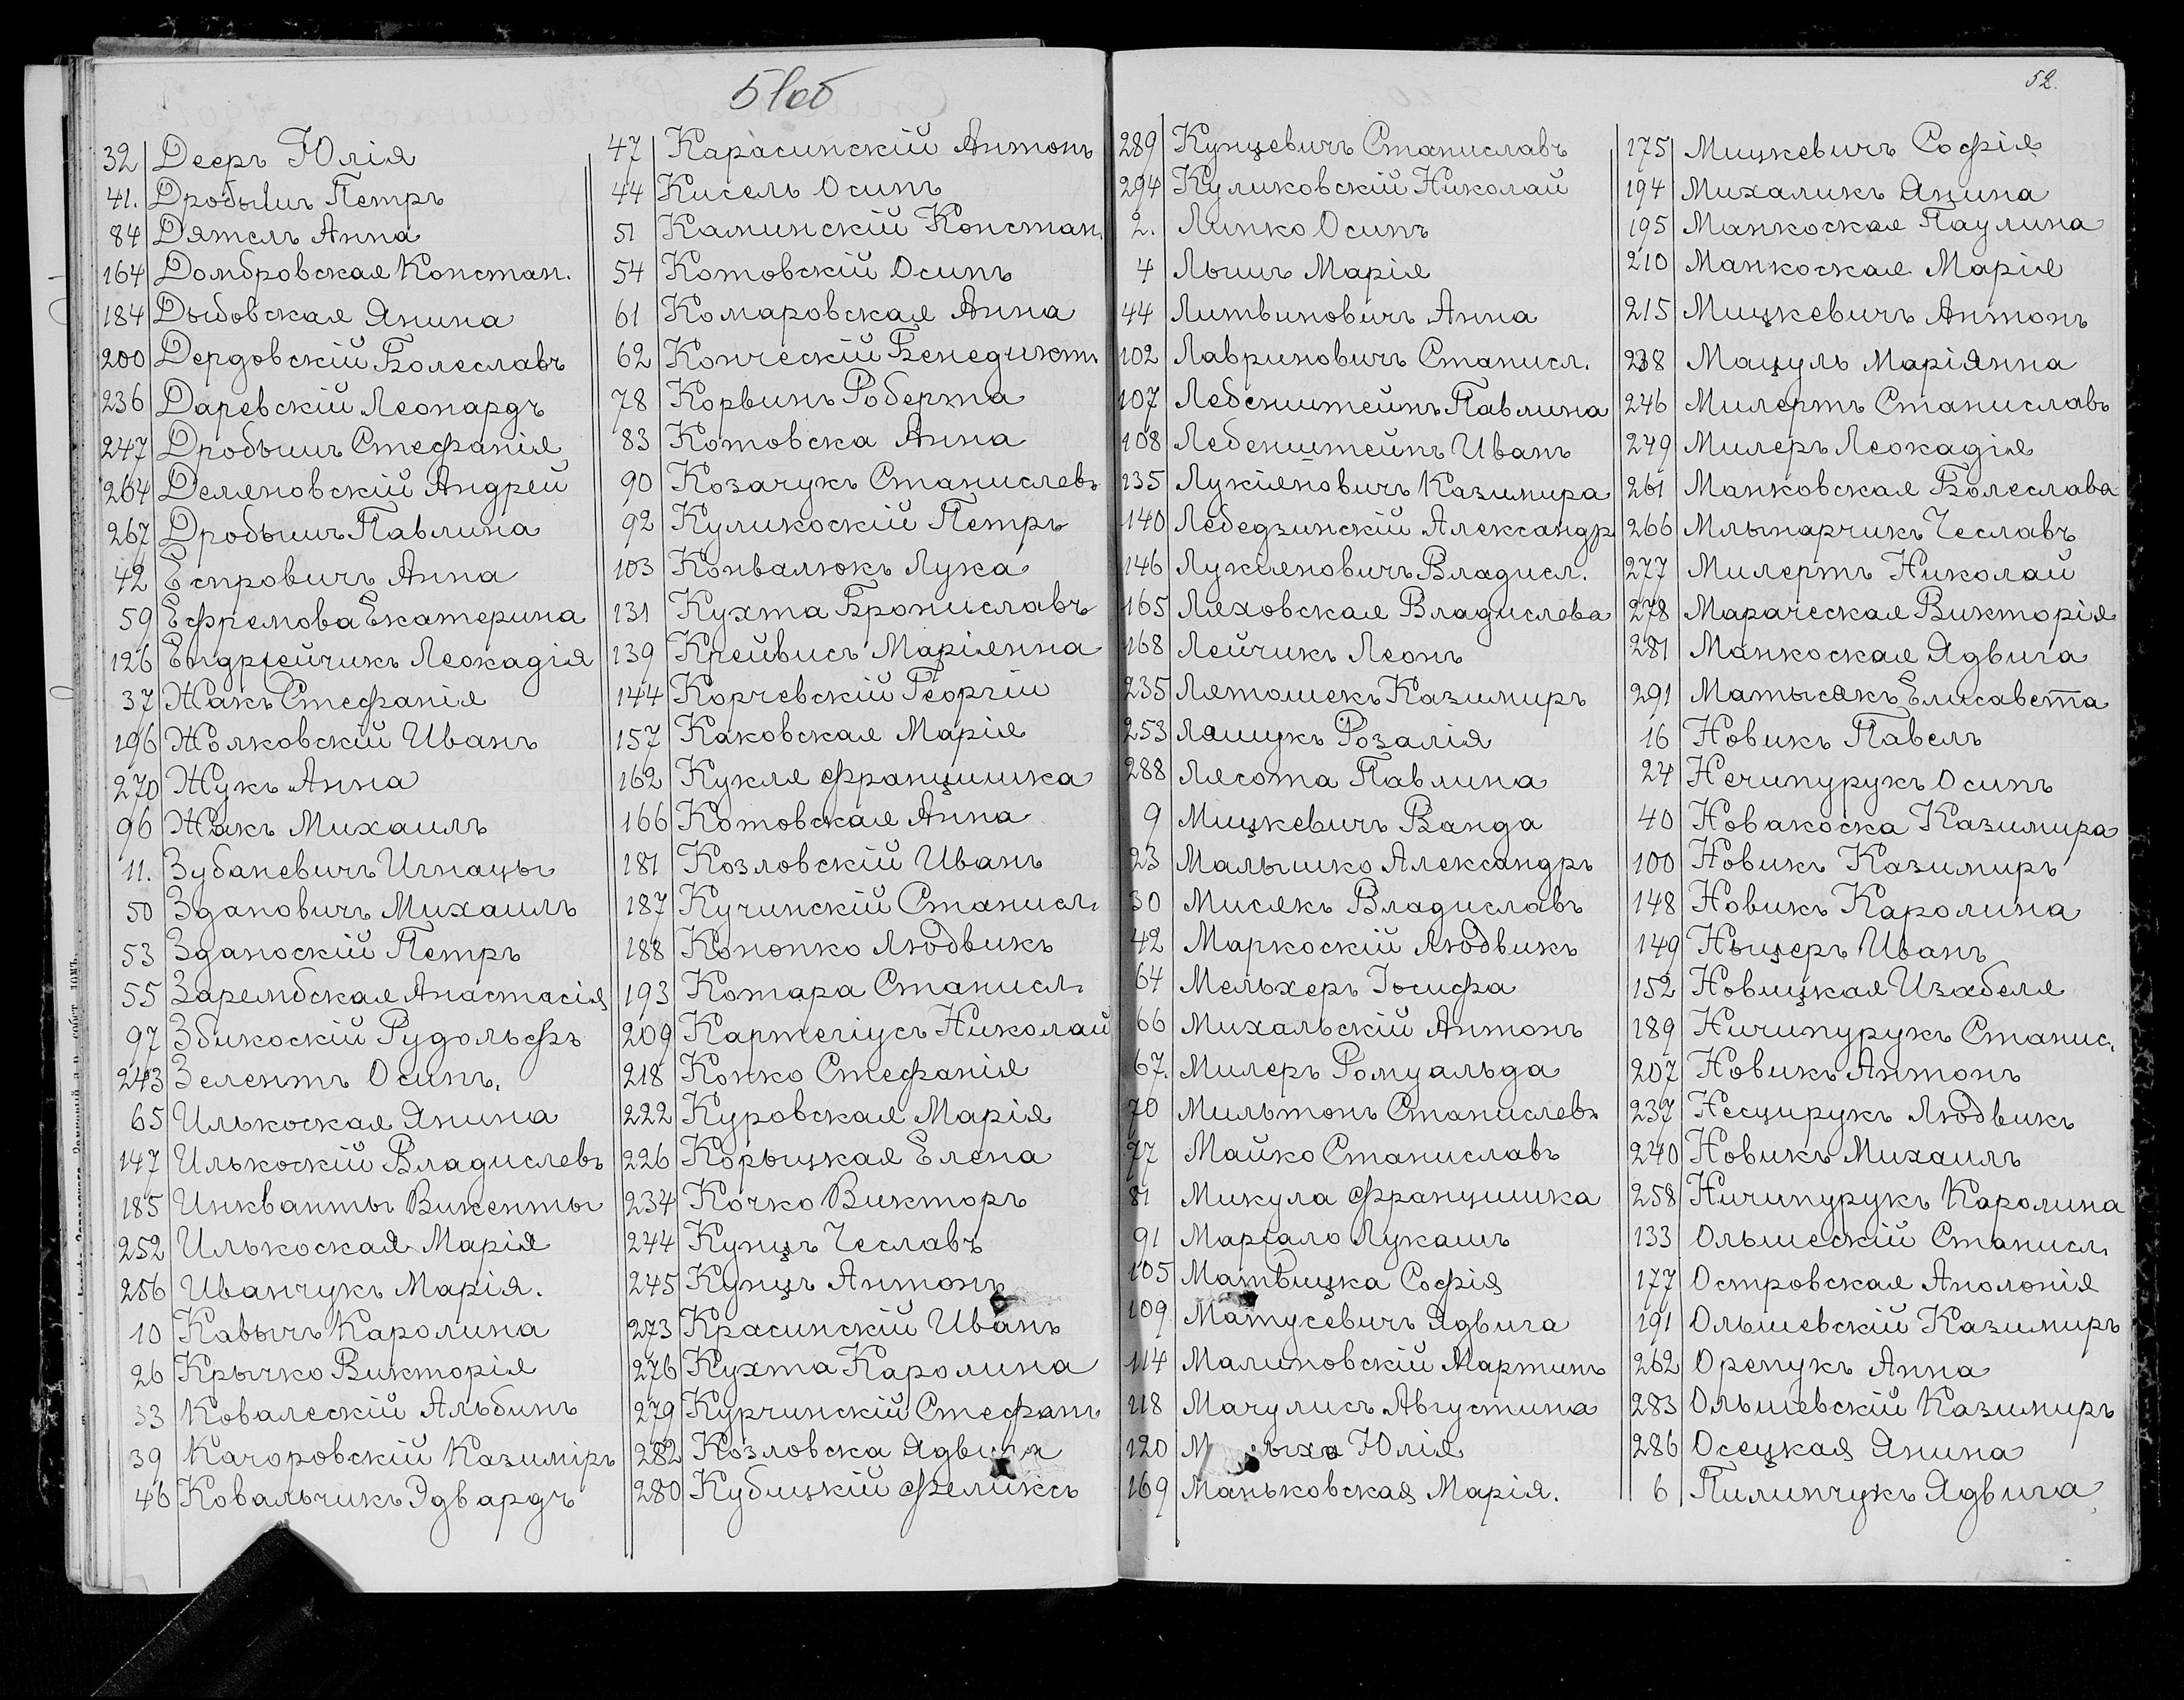 51об
32 Дееръ Юлія
41. Дробышъ Петръ
84 Дятелъ Анна
164 Домбровская Констан.
184 Дыбовская Янина
200 Дердовскій Болеславъ
236 Даревскій Леонардъ
247 Дробышъ Стефанія
264 Деляновскій Андрей
267 Дробышъ Павлина
42 Еспровичъ Анна
59 Ефремова Екатерина
126 Ендрейчикъ Леокадія
37 Жакъ Стефанія
196 Жолковскій Иванъ
270 Жукъ Анна
96 Жакъ Михаилъ
11. Зубаневичъ Игнацы
50 Здановичъ Михаилъ
53 Зданоскій Петръ
55 Зарембская Анастасія
97 Збикоскій Рудольфъ
243 Зелентъ Осипъ.
65 Илькоская Янина
147 Илькоскій Владислевъ
185 Инкванты Викенты
252 Илькоская Марія
256 Иванчукъ Марія.
10 Кавычъ Каролина
26 Крычко Викторія
33 Ковалескій Альбинъ
39 Качоровскій Казиміръ
46 Ковальчикъ Эдвардъ
47 Карасинскій Антонъ
44 Кисель Осипъ
51 Каминскій Констан.
54 Котовскій Осипъ
61 Комаровская Анна
62 Конческій Бенедиктъ
78 Корвинъ Роберта
83 Котовска Анна
90 Козачукъ Станислевъ
92 Куликоскій Петръ
103 Конвалюкъ Лука
131 Кухта Брониславъ
139 Крейвисъ Маріянна
144 Корчевскій Георгій
157 Каковская Марія
162 Кукля Францишка
166 Котовская Анна
181 Козловскій Иванъ
187 Кучинскій Станисл.
188 Конопко Людвикъ
193 Котара Станисл.
209 Картегіусъ Николай
218 Конко Стефанія
222 Куровская Марія
226 Корыцкая Елена
234 Кочко Викторъ
244 Кунцъ Чеславъ
245 Кунцъ Антонъ
273 Красинскій Иванъ
276 Кухта Каролина
279 Курчинскій Стефанъ
282 Козловска Ядвига
280 Кубицкій Феликсъ
52.
289 Кунцевичъ Станиславъ
294 Куликовскій Николай
2. Липко Осипъ
4 Лышъ Марія
44 Литвиновичъ Анна
102 Лавриновичъ Станисл.
107 Лебенштейнъ Павлина
108 Лебенштейнъ Иванъ
135 Лукіяновичъ Казимира
140 Лебедзинскій Александръ
146 Лукіяновичъ Владисл.
165 Ляховская Владислева
168 Лейчикъ Леонъ
235 Лятошекъ Казимиръ
253 Ляшукъ Розалія
288 Лясота Павлина
9 Мицкевичъ Ванда
23 Малышко Александръ
30 Мисякъ Владиславъ
42 Маркоскій Людвикъ
64 Мельхеръ Іосифа
66 Михальскій Антонъ
67. Милеръ Ромуальда
70 Мильтонъ Станислевъ
77 Майко Станиславъ
81 Микула Францишка
91 Маргало Лукашъ
105 Матвицка Софія
109 Матусевичъ Ядвига
114 Малиновскій Мартинъ
118 Мачулисъ Августина
120 Юлія
169 Маньковская Марія.
175 Мицкевичъ Софія
194 Михаликъ Янина
195 Манкоская Паулина
210 Манкоская Марія
215 Мицкевичъ Антонъ
238 Мацуль Маріянна
246 Милертъ Станиславъ
249 Милеръ Леокадія
261 Манковская Болеслава
266 Млынарчикъ Чеславъ
277 Милертъ Николай
278 Мараческая Викторія
281 Манкоская Ядвига
291 Матысякъ Елисавета
16 Новикъ Павелъ
24 Нечипурукъ Осипъ
40 Новакоска Казимира
100 Новикъ Казимиръ
148 Новикъ Каролина
149 Ныцеръ Иванъ
152 Новицкая Изабеля
189 Ничипурукъ Станис.
207 Новикъ Антонъ
237 Несцирукъ Людвикъ
240 Новикъ Михаилъ
258 Ничипурукъ Каролина
133 Ольшескій Станисл.
177 Островская Аполонія
191 Ольшевскій Казимиръ
262 Оренукъ Анна
283 Ольшевскій Казимиръ
286 Осецкая Янина
6 Пилипчукъ Ядвига